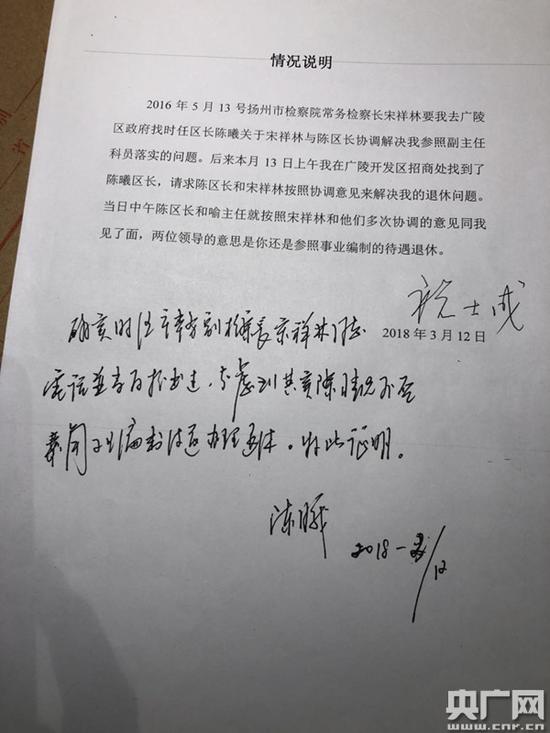 情况说明
2016年5月13号扬州市检察院常务检察长宋祥林要我去广陵
区政府找时任区长陈曦关于宋祥林与陈区长协调解决我参照副主任
科员落实的问题。后来本月13日上午我在广陵开发区招商处找到了
陈曦区长，请求陈区长和宋祥林按照协调意见来解决我的退休问题。
当日中午陈区长和喻主任就按照宋祥林和他们多次协调的意见同我
见了面，两位领导的意思是你还是参照事业编制的待遇退休。
2018年3月12日
确实时任常务副检察长宋祥林
电话 考虑到其实际情况
办理退休。特此证明。
陈曦
2018-3/12
央广网
www.cnr.cn